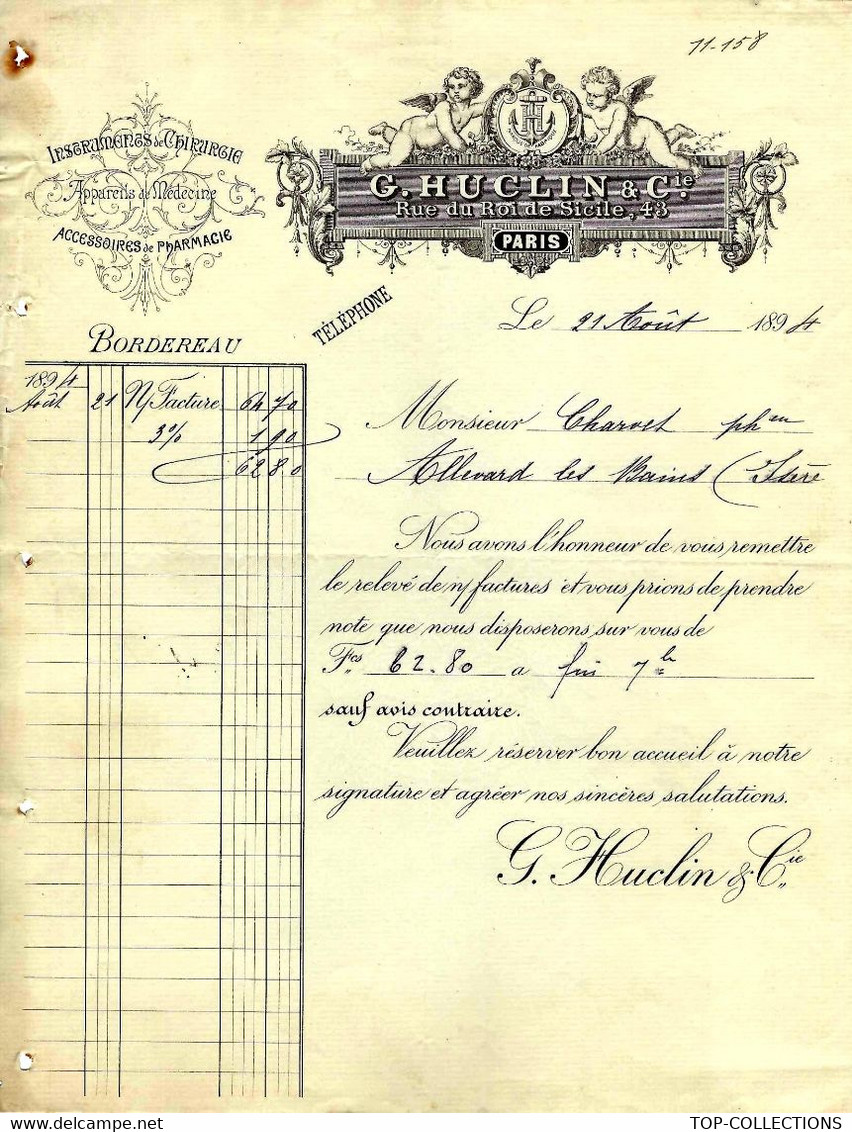 11-158
INSTRUMENTS de CHIRURGIE
Appareils de Médecine
ACCESSOIRES de PHARMACIE
H
G. HUCLIN & Cie
Rue du Roi de Sicile, 43
PARIS
TÉLÉPHONE
Le 21 Août 1894
BORDEREAU
1894
Août 21 N/ Facture 64 70
3% 1 90
62 80
Monsieur Charvet phen
Allevard les Bains (Isère
Nous avons l'honneur de vous remettre
le relevé de n/ factures et vous prions de prendre
note que nous disposerons sur vous de
Fcs 62.80 a fin 7bre
sauf avis contraire.
Veuillez réserver bon accueil à notre
signature et agréer nos sincères salutations.
G. Huclin & Cie
TOP-COLLECTIONS